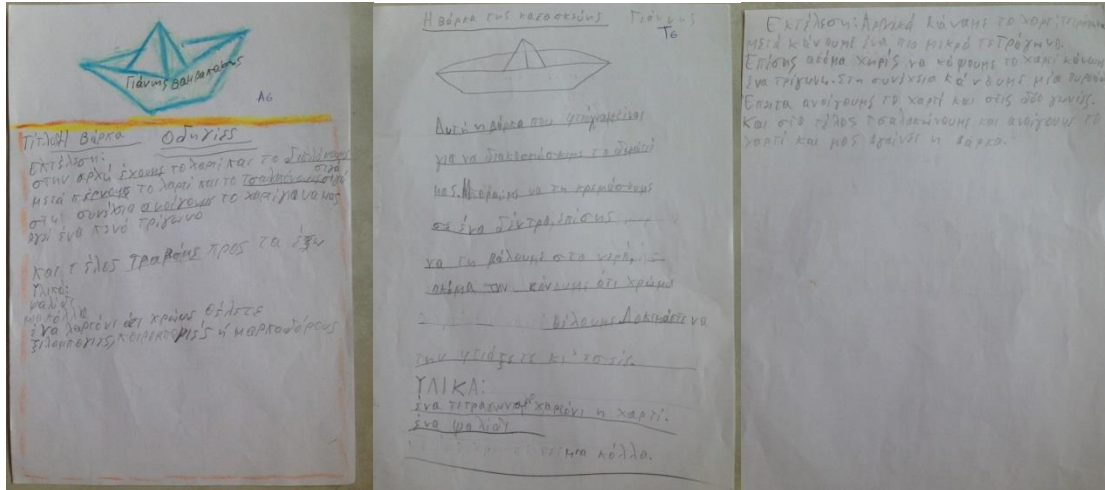 Γιάννης Βαμβακάσης
Α6
Τίτλος: Η βάρκα Οδηγίες
Εκτέλεση:
στην αρχή έχουμε το χαρτί και το διπλόνουμε
μετά πέρνουμε το χαρτί και το τσαλακόνουμε σιγά σιγά
στη συνέχια ανοίγουμε το χαρτί για να μας
βγεί ένα κενό τρίγωνο
και τέλος τραβάμε προς τα έξω
Υλικά:
ψαλίδι
μια κόλλα
ένα χαρτόνι ότι χρώμα θέλετε
ξιλομπογιες, κοιρομπογιές ή μαρκαδόρους
Η βάρκα της κατασκευής Γιάννης
Τ6
Αυτή η βάρκα που φτιαγμένη είναι
για να διακοσμήσουμε το δωμάτιό
μας. Μπορούμε να τη κρεμάσουμε
σε ένα δέντρο, επίσης
να τη βάλουμε στο νερό,
ακόμα την κάνουμε ότι χρώμα
θέλουμε. Δοκιμάστε να
την φτιάξετε κι' εσείς.
ΥΛΙΚΑ:
ένα τετράγωνο χαρτόνι η χαρτί.
ένα ψαλίδι
μια κόλλα.
Εκτέλεση: Αρχικά κάνουμε το χαρτί τετράγωνο
μετά κάνουμε ένα πιο μικρό τετράγωνο.
Επίσης ακόμα χωρίς να κόψουμε το χαρτί κάνουμε
ένα τρίγωνο. Στη συνέχεια κάνουμε μία
Έπητα ανοίγουμε το χαρτί και στις δύο γωνίες.
Και στο τέλος τσαλακώνουμε και ανοίγουμε το
χαρτί και μας βγαίνει η βάρκα.